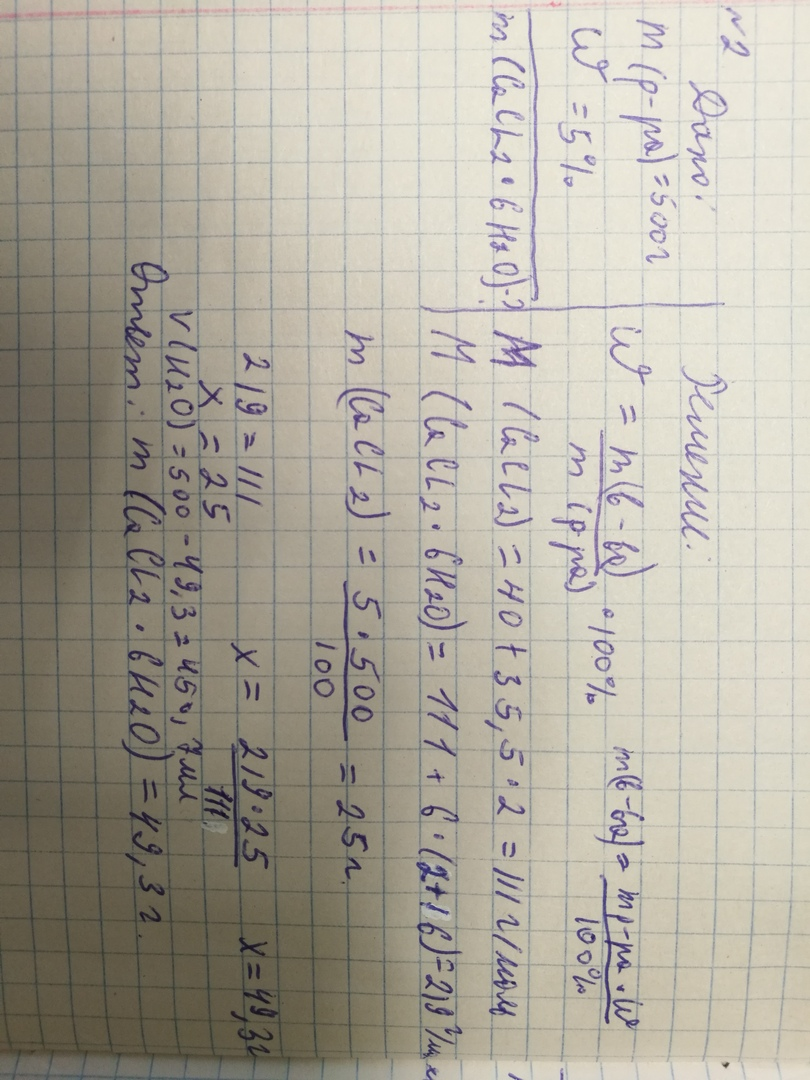 №2 Дано:
m(р-ра)=500г
W = 5%
m(CaCl2·6H2O)-?
Решение:
W = m(в-ва) / m(р-ра) · 100%
m(в-ва) = mр-ра·W / 100%
M (CaCl2) = 40 + 35,5·2 = 111 г/моль
M (CaCl2·6H2O) = 111 + 6·(2+16) = 219 г/моль
m (CaCl2) = 5·500 / 100 = 25г.
219 = 111
X = 25
X = 219·25 / 111
X = 49,3г
V(H2O) = 500 - 49,3 = 450,7 мл
Ответ: m (CaCl2·6H2O) = 49,3 г.